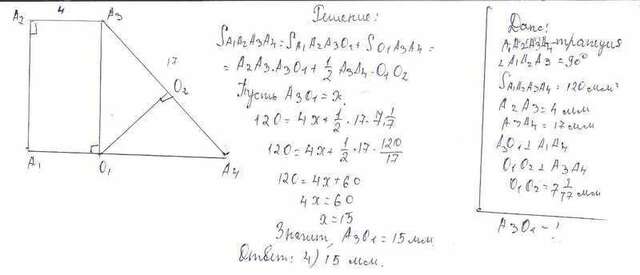 A2 4 A3
17
O2
A1 O1 A4
Решение:
SA1A2A3A4 = SA1A2A3O1 + SO1A3A4 =
= A2A3·A3O1 + 1/2 A3A4·O1O2
Пусть A3O1 = x.
120 = 4x + 1/2 · 17 · 7 1/17
120 = 4x + 1/2 · 17 · 120/17
120 = 4x + 60
4x = 60
x = 15
Значит, A3O1 = 15 мм.
Ответ: 4) 15 мм.
Дано:
A1A2A3A4 - трапеция
∠A1A2A3 = 90°
SA1A2A3A4 = 120 мм²
A2A3 = 4 мм
A3A4 = 17 мм
A3O1 ⊥ A1A4
O1O2 ⊥ A3A4
O1O2 = 7 1/17 мм
A3O1 - ?